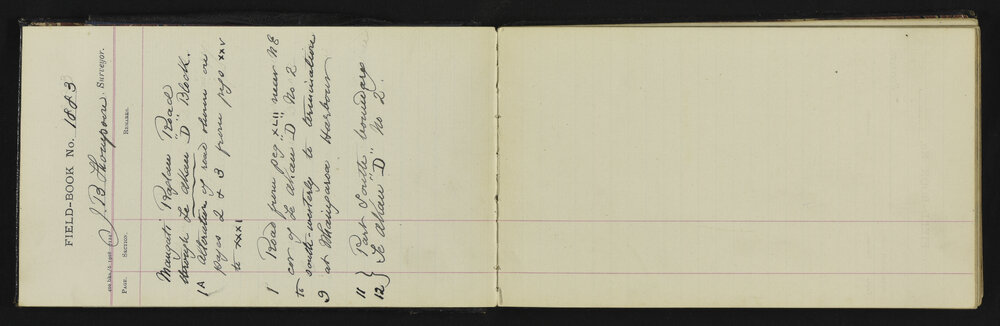 FIELD-BOOK No. 1883
J. B. Thompson Surveyor.
PAGE. SECTION. REMARKS.
Maungati Raglan Road
through Te Akau "D" Block.
1A Alteration of road shown on
pages 2 & 3 from pegs XXV
to XXXI
1 Road from peg XLII near NE
cor of Te Akau "D" No 2
to south-westerly to termination
9 at Whaingaroa Harbour
11 } Part South boundary
12 } Te Akau "D" No 2